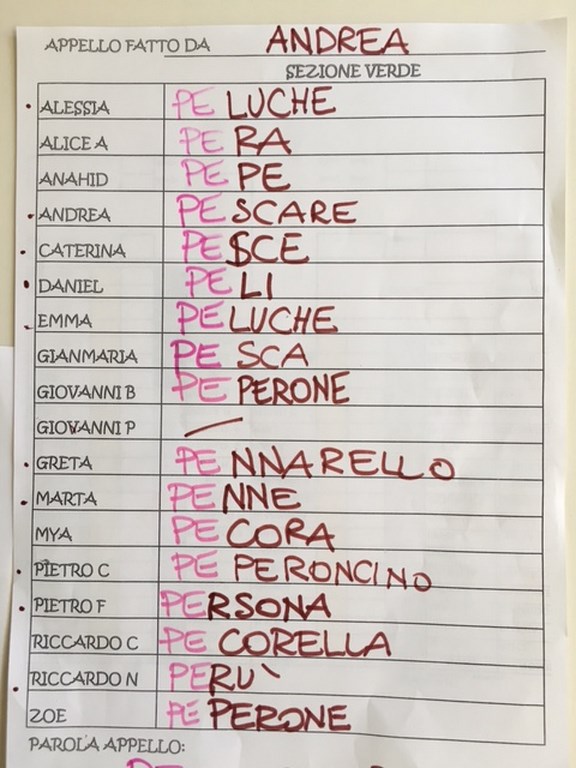 APPELLO FATTO DA ANDREA
SEZIONE VERDE
ALESSIA PELUCHE
ALICE A PERA
ANAHID PEPE
ANDREA PESCARE
CATERINA PESCE
DANIEL PELI
EMMA PELUCHE
GIANMARIA PESCA
GIOVANNI B PEPERONE
GIOVANNI P —
GRETA PENNARELLO
MARTA PENNE
MYA PECORA
PIETRO C PEPERONCINO
PIETRO F PERSONA
RICCARDO C PECORELLA
RICCARDO N PERU`
ZOE PEPERONE
PAROLA APPELLO: